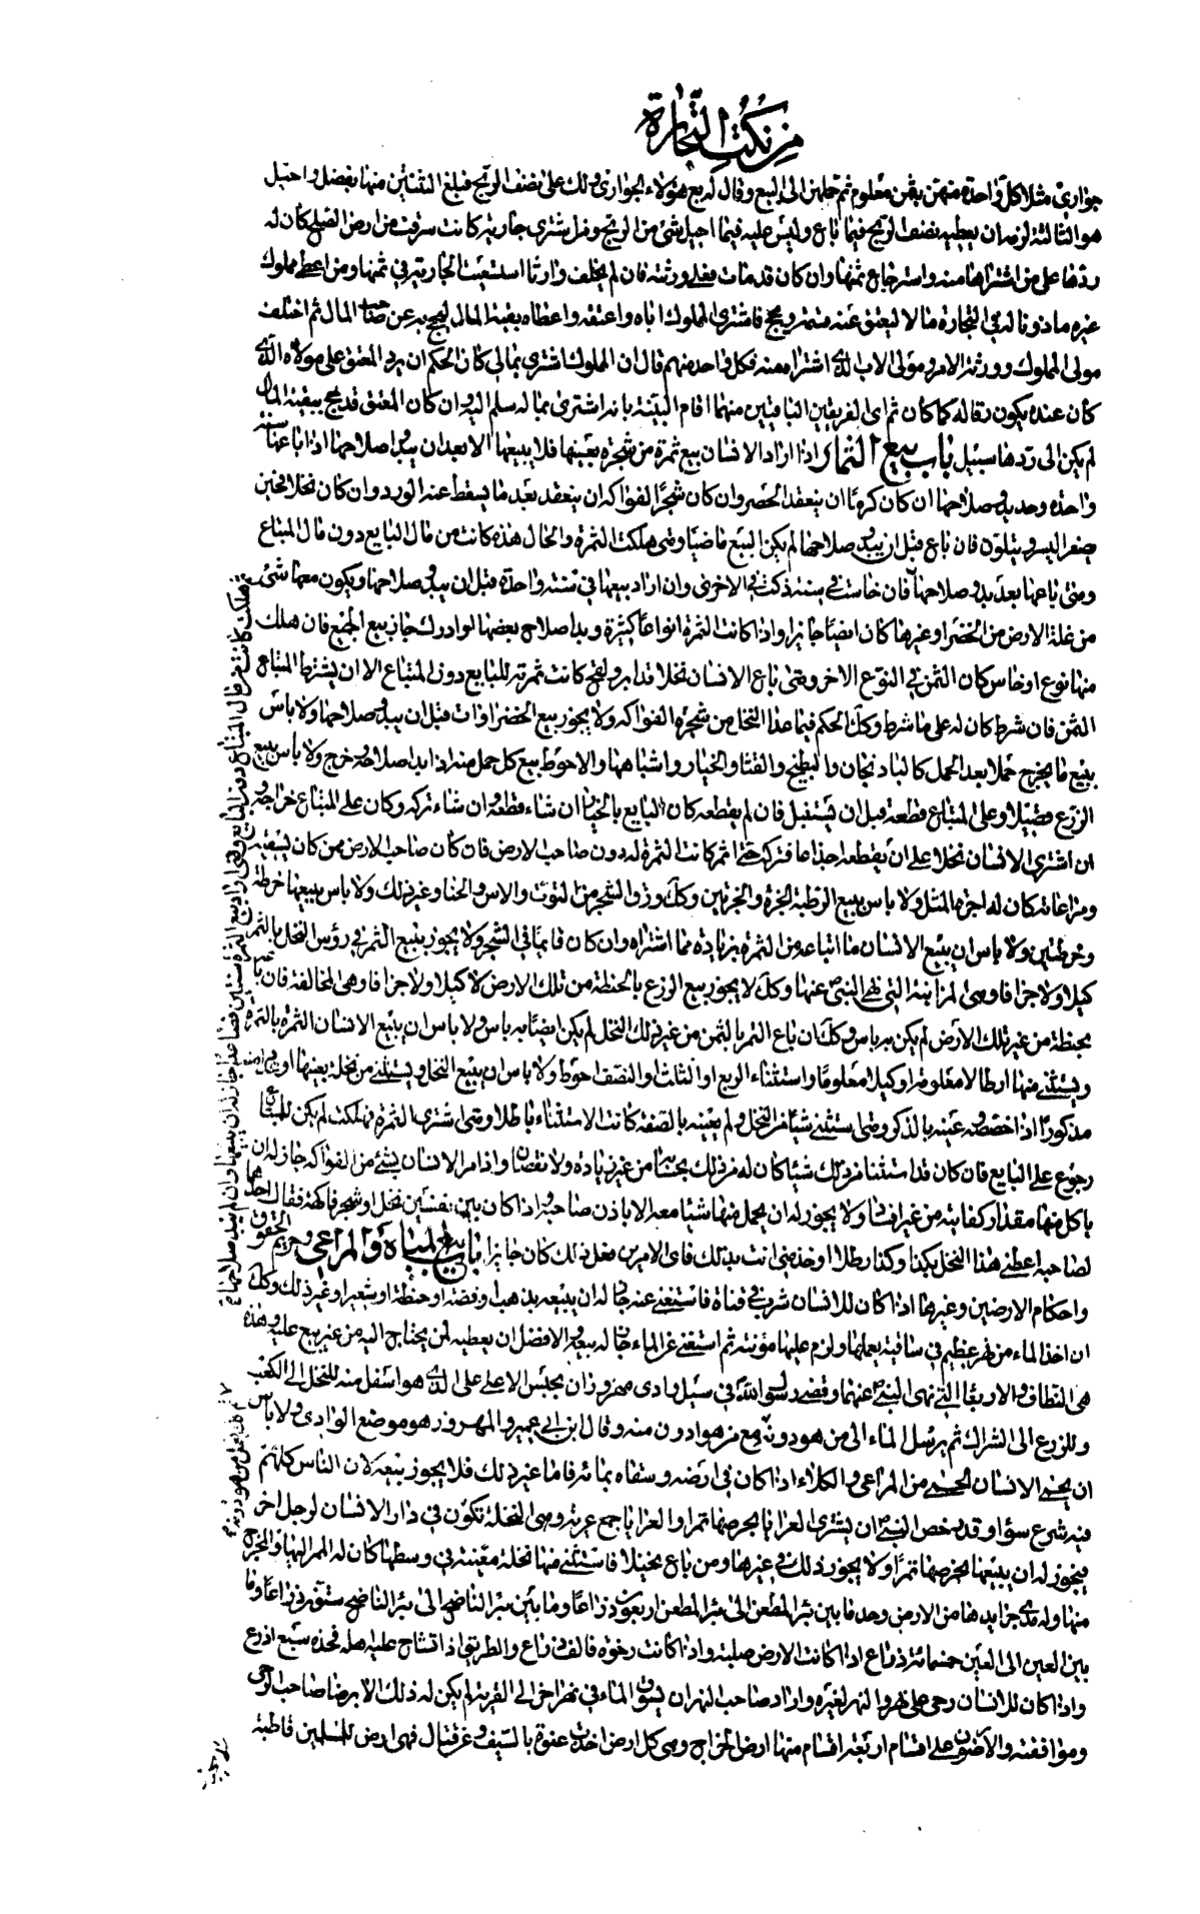 من نكت التجارة
جواري مثلا كل واحدة منهن بثمن معلوم ثم حملهن الى البيع وقال له بع هؤلاء الجواري ولك على نصف الربح فبلغ الثنتين منها بفضل واحبل
هو الثالثة لزمه ان يعطيه نصف الربح فيما باع وليس عليه فيما احبل شئ من الربح ومن اشترى جارية كانت سرقت من ارض الصلح كان له
ردها على من اشتراها منه واسترجاع ثمنها وان كان قد مات فعلى ورثته فان لم يخلف وارثا استسعيت الجارية في ثمنها ومن اعطى مملوك
غيره ماذونا له في التجارة مالا ليعتق عنه نسمة ويحج فاشترى المملوك اباه واعتقه واعطاه بقية المال ليحج به عن صاحب المال ثم اختلف
مولى المملوك وورثة الامر ومولى الاب الذي اشتراه منه فكل واحد منهم قال ان المملوك اشترى بمالي كان الحكم ان يرد المعتق على مولاه الذي
كان عنده يكون رقا له كما كان ثم اي الفريقين الباقيين منهما اقام البينة بانه اشترى بماله سلم اليه وان كان المعتق قد حج ببقية المال
لم يكن الى ردها سبيل باب بيع الثمار اذا اراد الانسان بيع ثمرة من شجرة بعينها فلا يبيعها الا بعد ان يبدو صلاحها اذا باعها سنة
واحدة وحد بدو صلاحها ان كان كرما ان ينعقد الحصرم وان كان شجر الفواكه ان ينعقد بعد ما يسقط عنه الورد وان كان نخلا فحين
يصفر البسر ويتلون فان باع قبل ان يبدو صلاحها لم يكن البيع ماضيا ومتى هلكت الثمرة والحال هذه كانت من مال البايع دون مال المبتاع
ومتى باعها بعد بدو صلاحها فان خاست في سنة زكت في الاخرى وان اراد بيعها في سنة واحدة قبل ان يبدو صلاحها ويكون معها شئ
من غلة الارض من الخضر او غيرها كان ايضا جايزا واذا كانت الثمرة انواعا كثيرة وبدا صلاح بعضها او ادرك جاز بيع الجميع فان هلك
منها نوع او خاس كان الثمن في النوع الاخر ومتى باع الانسان نخلا قد ابر ولقح كانت ثمرته للبايع دون المبتاع الا ان يشترط المبتاع
الثمن فان شرط كان له على ما شرط وكك الحكم فيما عدا النخل من شجرة الفواكه ولا يجوز بيع الخضراوات قبل ان يبدو صلاحها ولا باس
ببيع ما يخرج حملا بعد الحمل كالباذنجان والبطيخ والقثاء والخيار واشباهها والاحوط بيع كل حمل منه اذا بدا صلاحه وخرج ولا باس ببيع
الزرع قصيلا وعلى المبتاع قطعه قبل ان يسنبل فان لم يقطعه كان البايع بالخيار ان شاء قطعه وان شاء تركه وكان على المبتاع خراجه و
ان اشترى الانسان نخلا على ان يقطعه اجذاعا فتركه حتى اثمر كانت الثمرة له دون صاحب الارض فان كان صاحب الارض ممن كان يسقيه
ومراعاته كان له اجرة المثل ولا باس ببيع الرطبة الجزة والجزتين وكك ورق الشجر من التوت والاس والحنا وغير ذلك ولا باس ببيعها خرطة
وخرطتين ولا باس ان يبيع الانسان ما ابتاعه من الثمرة بزيادة مما اشتراه وان كان قايما في الشجر ولا يجوز بيع الثمر في رؤس النخل بالتمر
كيلا ولا جزافا وهي المزابنة التي نهى النبي ص عنها وكك لا يجوز بيع الزرع بالحنطة من تلك الارض لا كيلا ولا جزافا وهي المحاقلة فان باعه
بحنطة من غير تلك الارض لم يكن به باس وكك ان باع التمر بالثمن من غير ذلك النخل لم يكن ايضا به باس ولا باس ان يبيع الانسان الثمرة بالثمرة
ويستثنى منها ارطالا معلومة او كيلا معلوما واستثناء الربع او الثلث او النصف احوط ولا باس ان يبيع النخل ويستثنى من نخلة بعينها او
مذكورا اذا خصصه وعينه بالذكر ومتى استثنى شيئا من النخل ولم يعينه بالصفة كانت الاستثناء باطلا ومتى اشترى الثمرة فهلكت لم يكن للمبتاع
رجوع على البايع فان كان قد استثنا من ذلك شيئا كان له من ذلك بحسابه من غير زيادة ولا نقصان واذا مر الانسان بشئ من الفواكه جاز له ان
ياكل منها مقدار كفايته من غير افساد ولا يجوز له ان يحمل منها شيئا معه الا باذن صاحبه واذا كان بين نفسين نخل او شجر فاكهة فقال احدهما
لصاحبه اعطني هذا النخل بكذا وكذا رطلا او خذ مني انت بذلك فاي الامرين فعل ذلك كان جايزا باب بيع المياه والمراعي وحريم الحقوق
واحكام الارضين وغيرها اذا كان للانسان شرب في قناة فاستغنى عنه جاز له ان يبيعه بذهب او فضة او حنطة او شعير او غير ذلك وكك
ان اخذ الماء من نهر عظيم في ساقية يعملها ولزم عليها مؤنة ثم استغنى عن الماء جاز له بيعه والافضل ان يعطيه لمن يحتاج اليه من غير بيع عليه وهذه
هي النطاف والاربعاء التي نهى النبي ص عنهما وقضى رسول الله في سيل وادي مهزور ان يحبس الاعلى على الذي هو اسفل منه للنخل الى الكعب
وللزرع الى الشراك ثم يرسل الماء الى من هو دونه ثم مع من هو ادون منه وقال ابن ابي عمير والمهزور هو موضع الوادي ولا باس
ان يحمى الانسان الحمى من المراعي والكلاء اذا كان في ارضه وسقاه بمائه فاما غير ذلك فلا يجوز بيعه لان الناس كلهم
فيه شرع سواء وقد رخص النبي ص ان يشترى العرايا بخرصها تمرا والعرايا جمع عرية وهي النخلة تكون في دار الانسان لرجل اخر
فيجوز له ان يبيعها بخرصها تمرا ولا يجوز ذلك في غيرها ومن باع نخيلا فاستثنى منها نخلة معينة في وسطها كان له الممر اليها والمخرج
منها وله مدى جرايدها من الارض وحد ما بين بئر المعطن الى بئر المعطن اربعون ذراعا وما بين بئر الناضح الى بئر الناضح ستون ذراعا وما
بين العين الى العين خمسمائة ذراع اذا كانت الارض صلبة واذا كانت رخوة فالف ذراع والطريق اذا تشاح عليه اهله فحده سبع اذرع
واذا كان للانسان رحى على نهر والنهر لغيره واراد صاحب النهر ان يسوق الماء في نهر اخر الى القرية لم يكن له ذلك الا برضا صاحب الرحى
وموافقته والارضون على اقسام اربعة اقسام منها ارض الخراج وهي كل ارض اخذت عنوة بالسيف وعن قتال فهي ارض للمسلمين قاطبة
هلكت كانت من مال المبتاع دون البايع ومتى اراد بيع الثمرة سنتين فصاعدا جاز له ان يبيعها وان لم يبد صلاحها